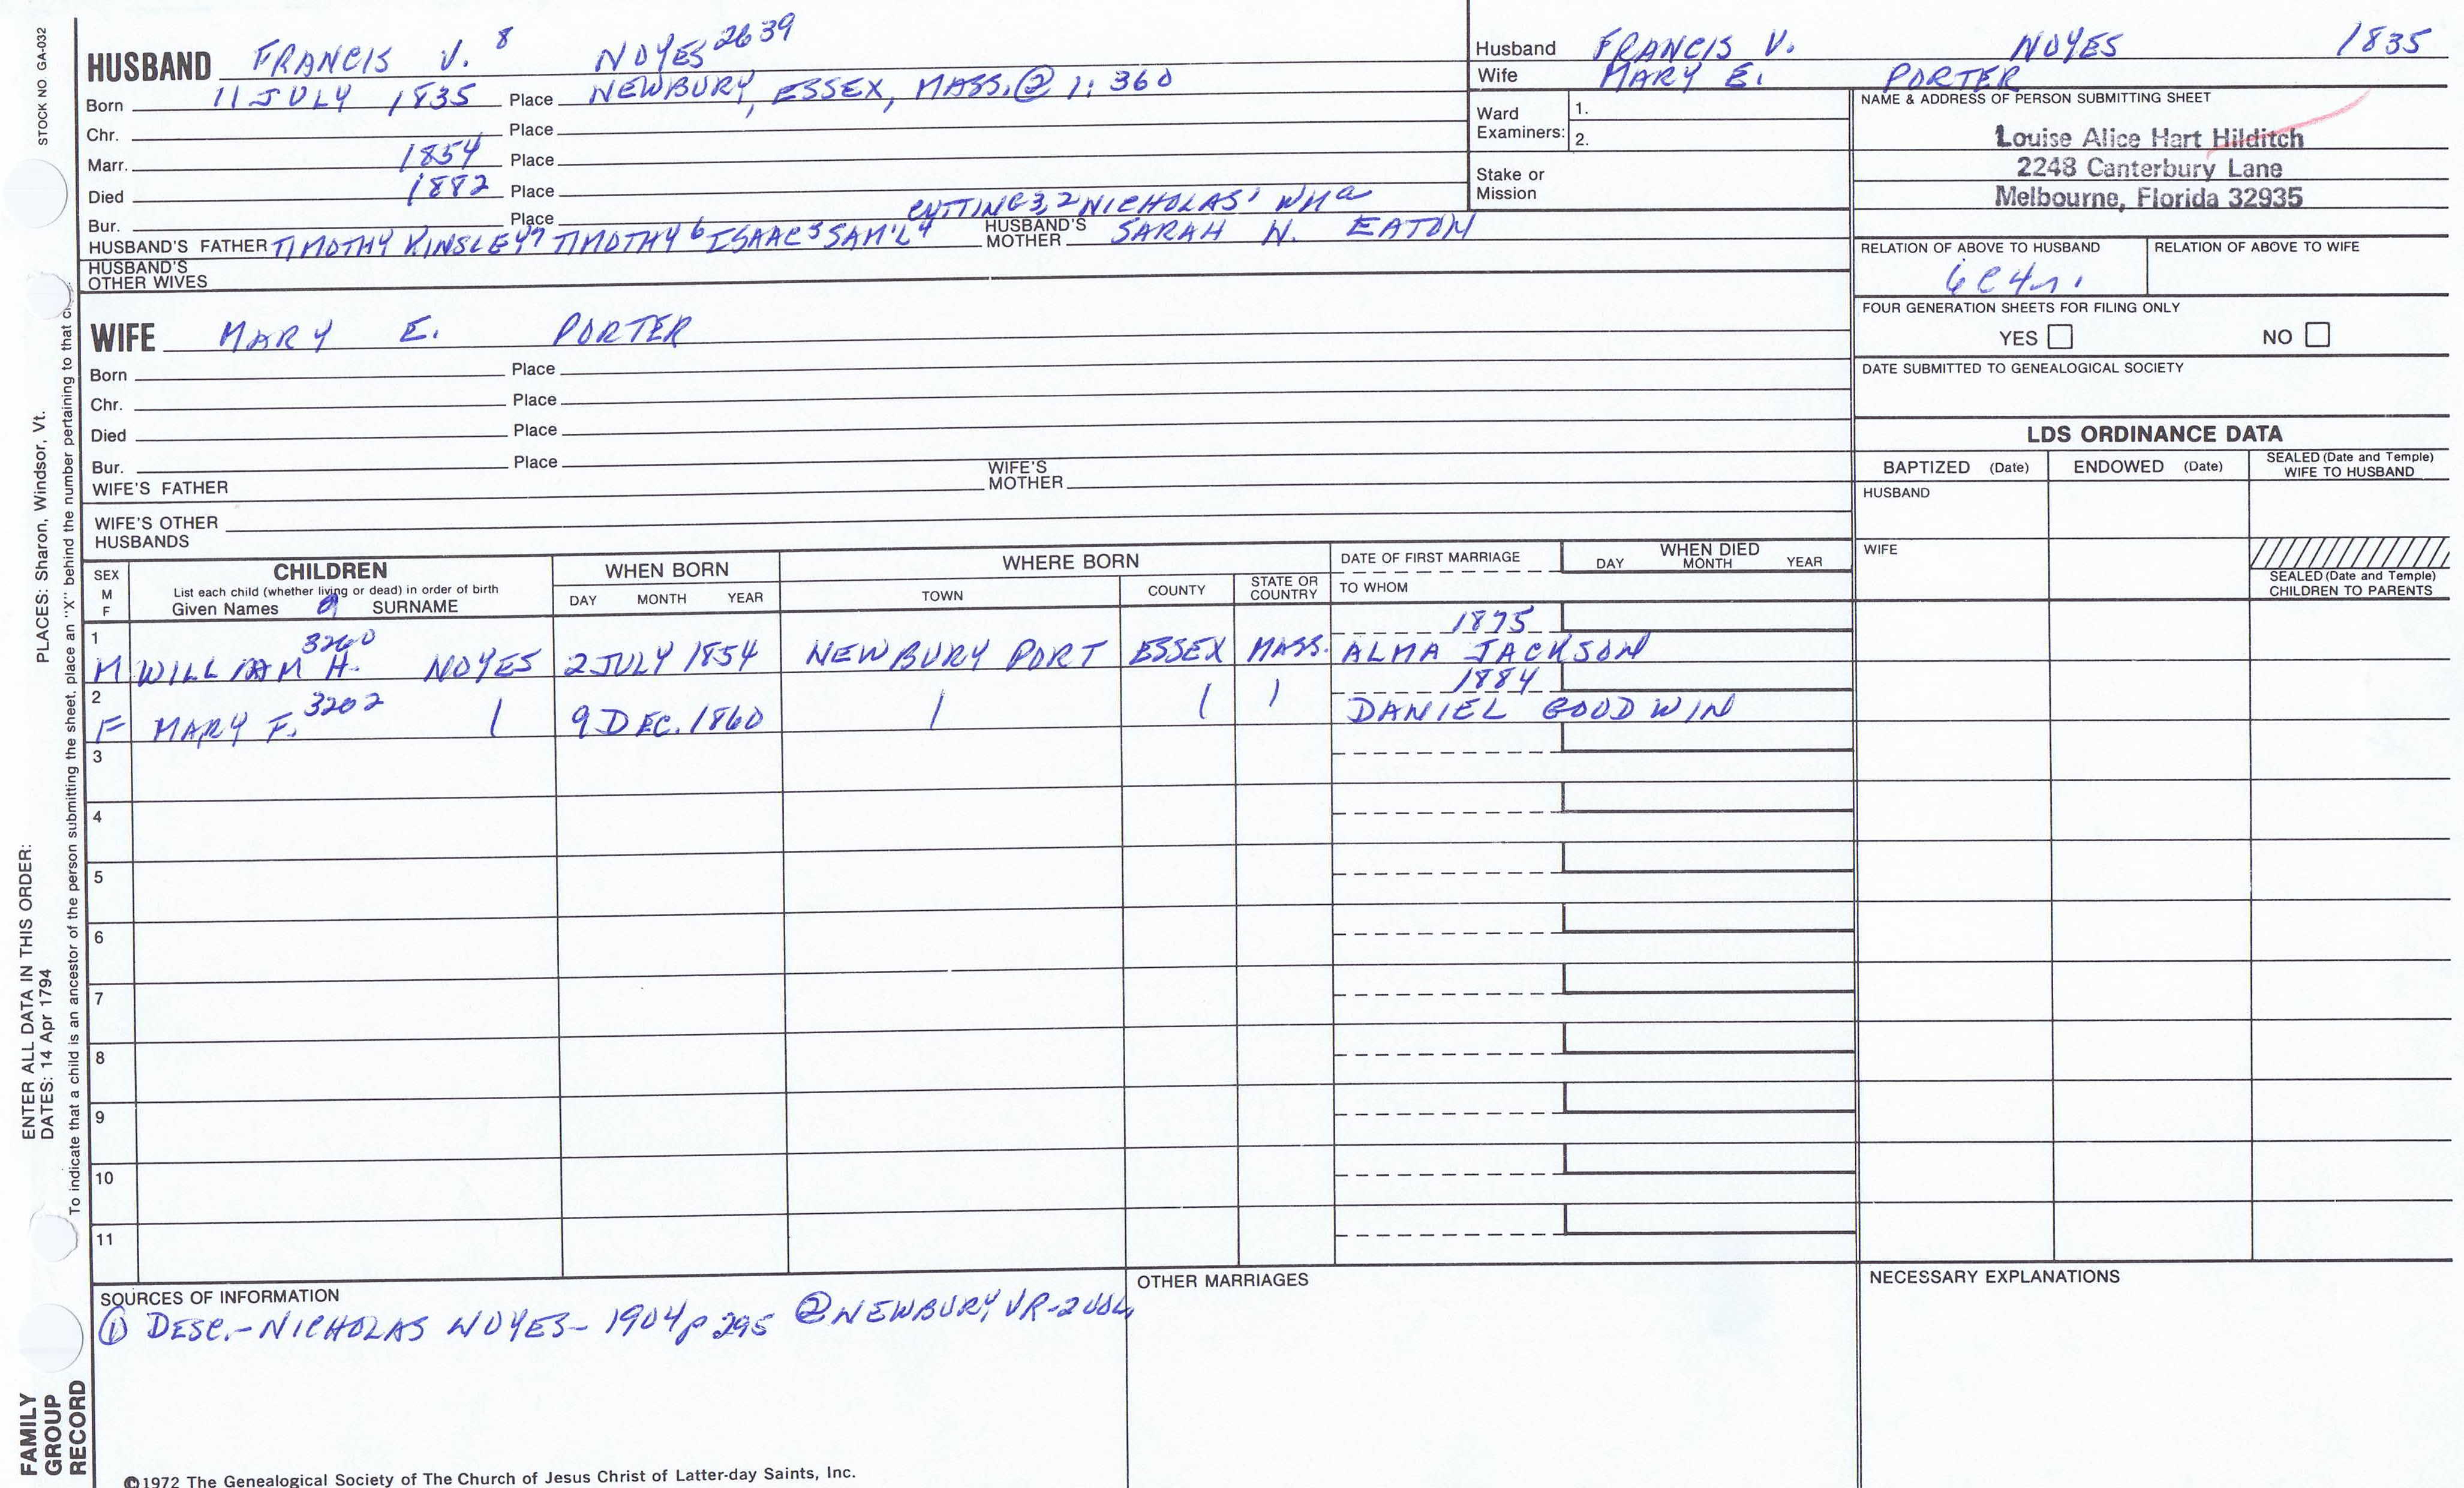 STOCK NO. GA-032
HUSBAND FRANCIS V. 8 NOYES 2639
Born 11 JULY 1835 Place NEWBURY, ESSEX, MASS. @ 1: 360
Chr. Place
Marr. 1854 Place
Died 1882 Place
Bur. Place CUTTING 3, 2 NICHOLAS' WMa
HUSBAND'S FATHER TIMOTHY KINSLEY 7 TIMOTHY 6 ISAAC 5 SAM'L 4 HUSBAND'S MOTHER SARAH W. EATON
HUSBAND'S OTHER WIVES
Husband FRANCIS V. NOYES 1835
Wife MARY E. PORTER
Ward Examiners: 1.
2.
Stake or Mission
NAME & ADDRESS OF PERSON SUBMITTING SHEET
Louise Alice Hart Hilditch
2248 Canterbury Lane
Melbourne, Florida 32935
RELATION OF ABOVE TO HUSBAND RELATION OF ABOVE TO WIFE
6C4r.
FOUR GENERATION SHEETS FOR FILING ONLY
YES NO
DATE SUBMITTED TO GENEALOGICAL SOCIETY
WIFE MARY E. PORTER
Born Place
Chr. Place
Died Place
Bur. Place
WIFE'S FATHER WIFE'S MOTHER
WIFE'S OTHER HUSBANDS
LDS ORDINANCE DATA
BAPTIZED (Date) ENDOWED (Date) SEALED (Date and Temple) WIFE TO HUSBAND
HUSBAND
WIFE
SEALED (Date and Temple) CHILDREN TO PARENTS
SEX M F CHILDREN List each child (whether living or dead) in order of birth Given Names 9 SURNAME
WHEN BORN DAY MONTH YEAR
WHERE BORN TOWN COUNTY STATE OR COUNTRY
DATE OF FIRST MARRIAGE TO WHOM
WHEN DIED DAY MONTH YEAR
1 3260 1875
M WILLIAM H. NOYES 2 JULY 1854 NEWBURY PORT ESSEX MASS. ALMA JACKSON
2 3262 1884
F MARY F. | 9 DEC. 1860 | | | DANIEL GOODWIN
3
4
5
6
7
8
9
10
11
SOURCES OF INFORMATION
① DESC.-NICHOLAS NOYES- 1904 p 295 @NEWBURY VR-2VOL
OTHER MARRIAGES
NECESSARY EXPLANATIONS
©1972 The Genealogical Society of The Church of Jesus Christ of Latter-day Saints, Inc.
FAMILY GROUP RECORD
ENTER ALL DATA IN THIS ORDER:
DATES: 14 Apr 1794
PLACES: Sharon, Windsor, Vt.
To indicate that a child is an ancestor of the person submitting the sheet, place an "X" behind the number pertaining to that